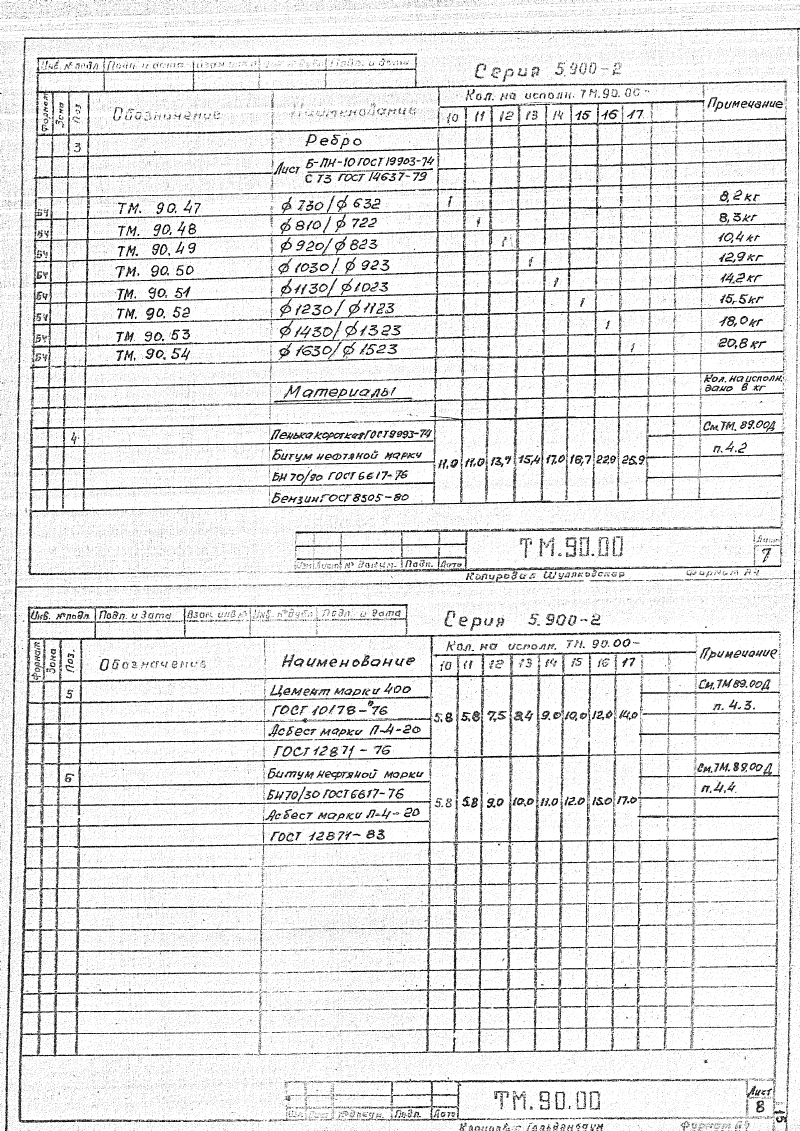 Инв. № подл. Подп. и дата Взам. инв. № Инв. № дубл. Подп. и дата
Серия 5.900-2
Формат Зона Поз. Обозначение Наименование Кол. на исполн. ТМ.90.00- Примечание
10 11 12 13 14 15 16 17
3 Ребро
Лист Б-ПН-10 ГОСТ 19903-74
С ТЗ ГОСТ 14637-79
БЧ ТМ. 90.47 ϕ 730/ϕ 632 1 8,2 кг
БЧ ТМ. 90.48 ϕ 810/ϕ 722 1 8,3 кг
БЧ ТМ. 90.49 ϕ 920/ϕ 823 1 10,4 кг
БЧ ТМ. 90.50 ϕ 1030/ϕ 923 1 12,9 кг
БЧ ТМ. 90.51 ϕ 1130/ϕ 1023 1 14,2 кг
БЧ ТМ. 90.52 ϕ 1230/ϕ 1123 1 15,5 кг
БЧ ТМ. 90.53 ϕ 1430/ϕ 1323 1 18,0 кг
БЧ ТМ. 90.54 ϕ 1630/ϕ 1523 1 20,8 кг
Материалы Кол. на исполн. дано в кг
4 Пенька короткая ГОСТ 9993-74 См. ТМ. 89.00Д
Битум нефтяной марки п. 4.2
11,0 11,0 13,7 15,4 17,0 18,7 22,9 25,9
БН 70/90 ГОСТ 6617-76
Бензин ГОСТ 8505-80
ТМ.90.00
Лист
7
Изм. Лист № докум. Подп. Дата
Копировал Формат А4
Инв. № подл. Подп. и дата Взам. инв. № Инв. № дубл. Подп. и дата
Серия 5.900-2
Формат Зона Поз. Обозначение Наименование Кол. на исполн. ТМ. 90.00- Примечание
10 11 12 13 14 15 16 17
5 Цемент марки 400 См. ТМ 89.00Д
ГОСТ 10178-76 п. 4.3.
5.8 5.8 7,5 8,4 9.0 10,0 12,0 14,0
Асбест марки П-4-20
ГОСТ 12871-76
6 Битум нефтяной марки См. ТМ. 89.00Д
БН 70/30 ГОСТ 6617-76 п. 4.4
5.8 5.8 9.0 10.0 11.0 12.0 15.0 17.0
Асбест марки П-4-20
ГОСТ 12871-83
ТМ.90.00
Лист
8
№ докум. Подп. Дата
15
Формат А4